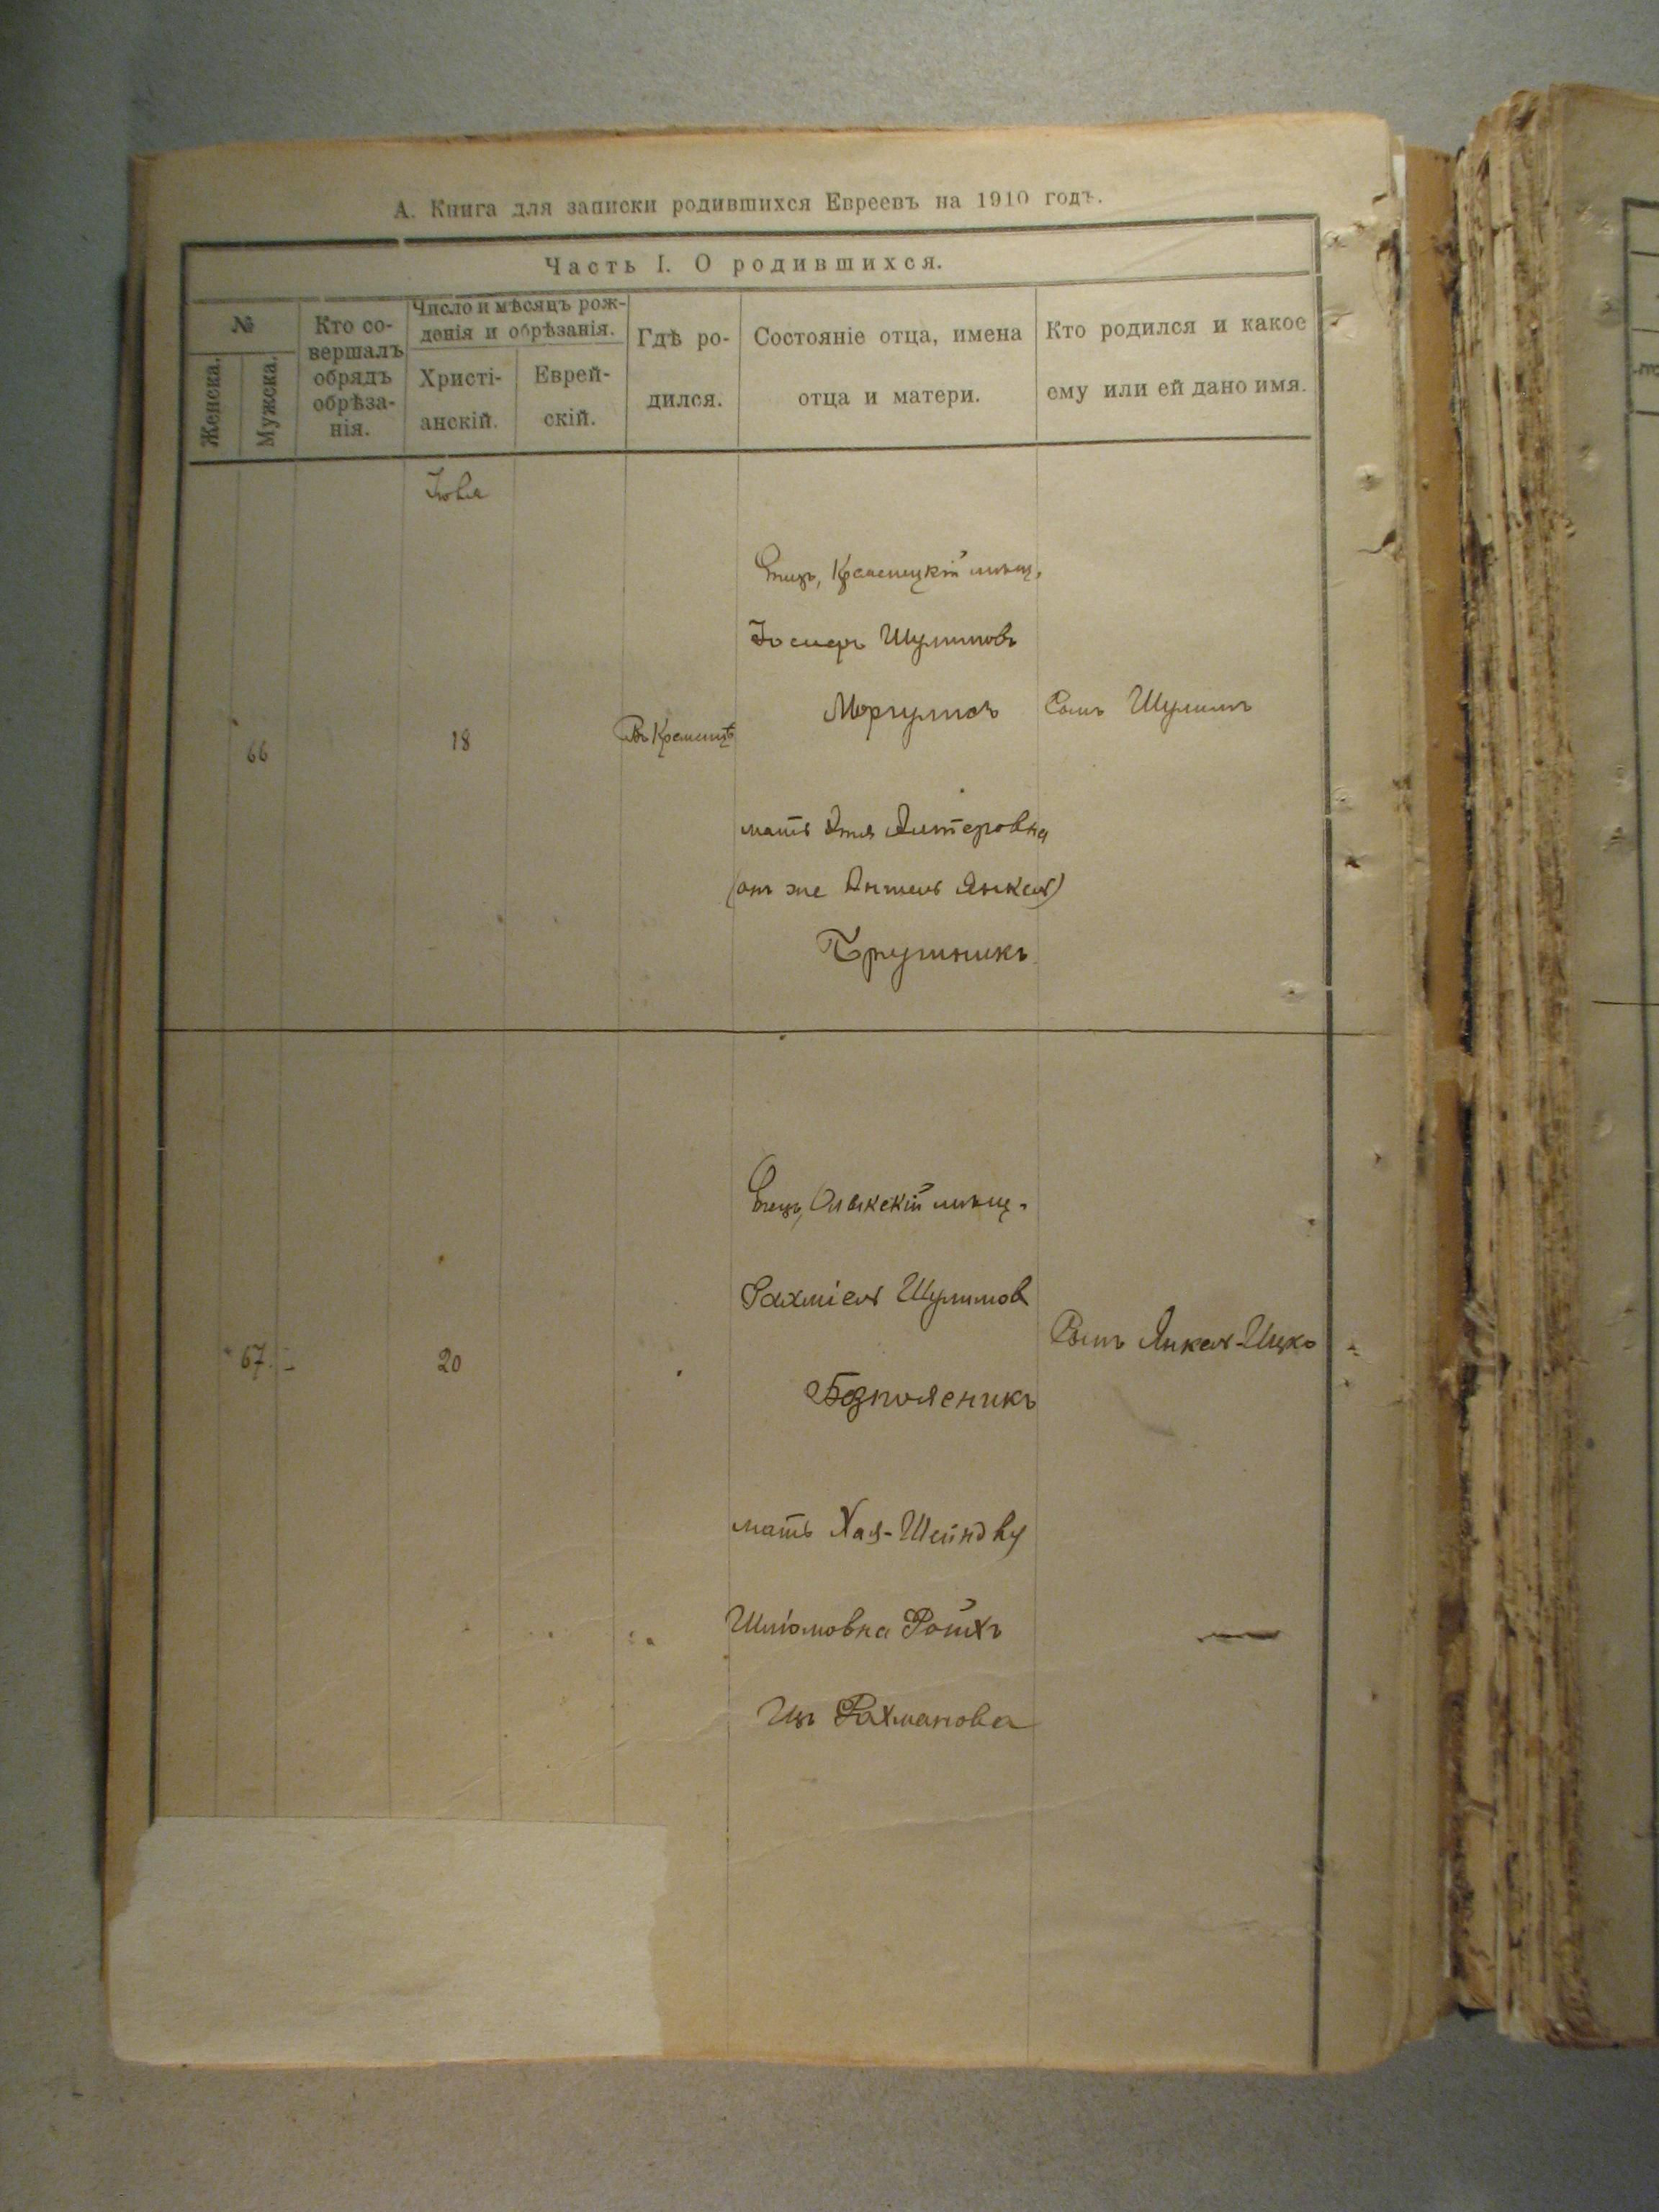 А. Книга для записки родившихся Евреевъ на 1910 годъ.
Часть I. О родившихся.
№
Женска.
Мужеска.
Кто со-
вершалъ
обрядъ
обрѣза-
нія.
Число и мѣсяцъ рож-
денія и обрѣзанія.
Христі-
анскій.
Еврей-
скій.
Гдѣ ро-
дился.
Состояніе отца, имена
отца и матери.
Кто родился и какое
ему или ей дано имя.
66
18
Въ Кременцѣ
Отецъ, Кременецкій мѣщ.
Іосифъ Шулимовъ
Моргулисъ
мать Этя Алтеровна
(онъ же Янкель)
Сынъ Шулимъ
67
20
Отецъ, Олыкскій мѣщ.
Рахміель Шулимов
мать Хая-Шейндля
Шліомовна Ройхъ
Изъ Рахманова
Сынъ Янкель-Ицко